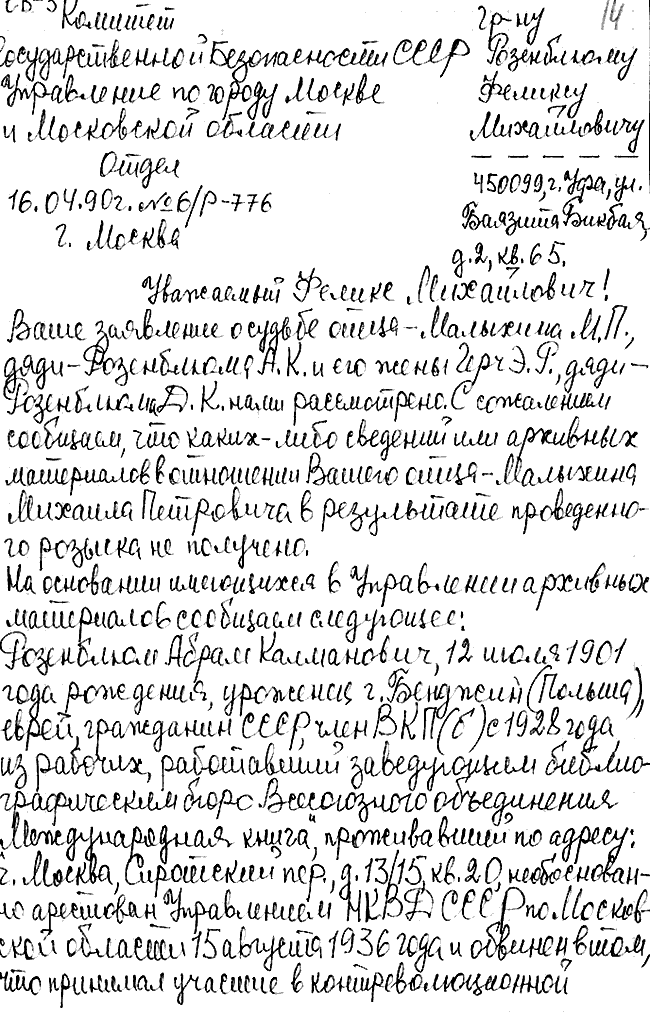 Комитет
Гр-ну
14
Государственной Безопасности СССР
Розенблюму
Управление по городу Москве
Феликсу
и Московской области
Михайловичу
Отдел
450099, г. Уфа, ул.
16.04.90г. №6/Р-776
Баязита Бикбая,
г. Москва
д.2, кв.65.
Уважаемый Феликс Михайлович!
Ваше заявление о судьбе отца - Малыхина М.П.,
дяди - Розенблюма А.К. и его жены Герч Э.Г., дяди -
Розенблюма Д.К. нами рассмотрено. С сожалением
сообщаем, что каких-либо сведений или архивных
материалов в отношении Вашего отца - Малыхина
Михаила Петровича в результате проведенно-
го розыска не получено.
На основании имеющихся в Управлении архивных
материалов сообщаем следующее:
Розенблюм Абрам Калманович, 12 июля 1901
года рождения, уроженец г. Бенджин (Польша),
еврей, гражданин СССР, член ВКП(б) с 1928 года
из рабочих, работавший заведующим библио-
графическим бюро Всесоюзного объединения
"Международная книга", проживавший по адресу:
г. Москва, Сиротский пер., д.13/15, кв.20, необоснован-
но арестован Управлением НКВД СССР по Москов-
ской области 15 августа 1936 года и обвинен в том,
что принимал участие в контрреволюционной